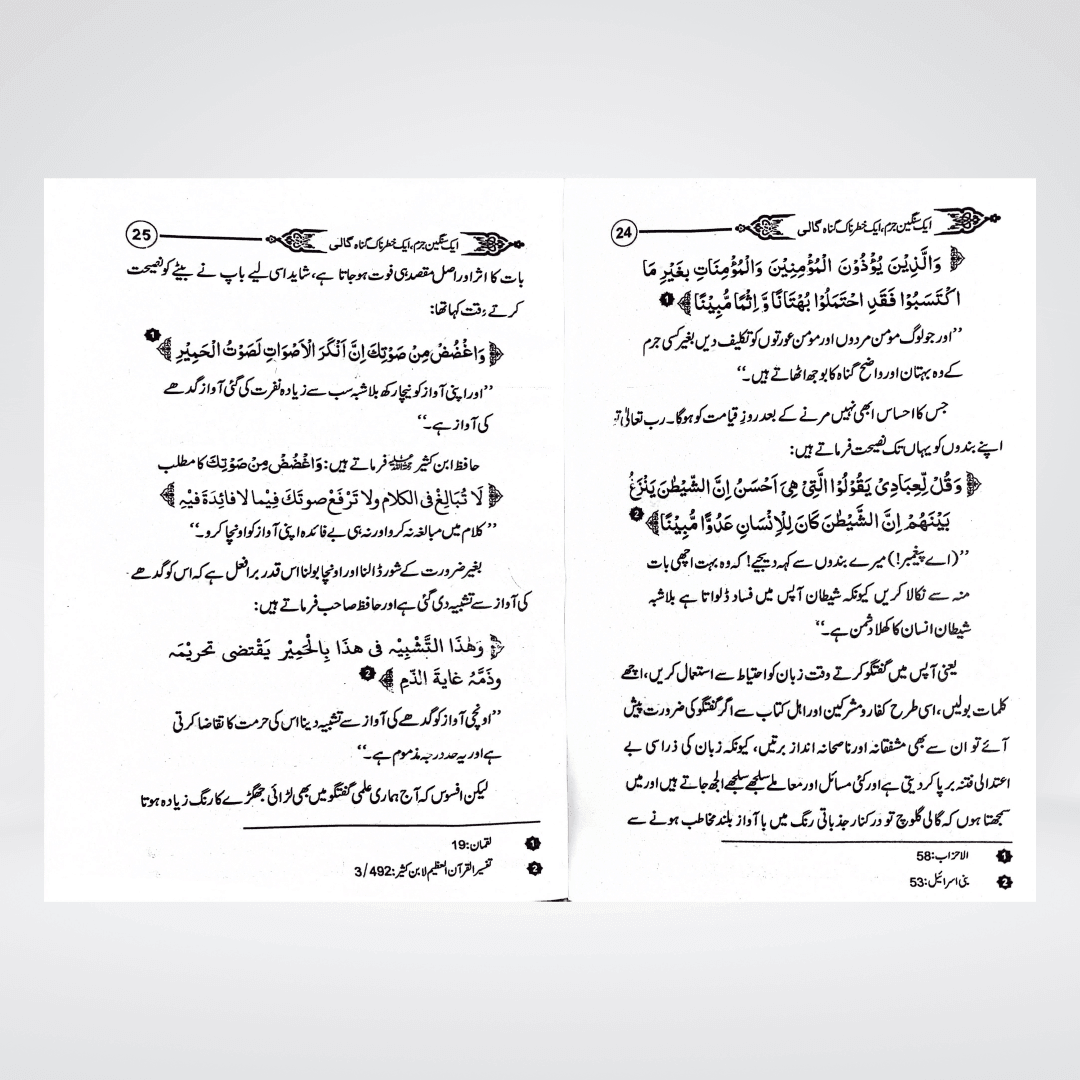 ایک سنگین جرم، ایک خطرناک گناہ گالی
24
﴿ وَالَّذِیْنَ یُؤْذُوْنَ الْمُؤْمِنِیْنَ وَالْمُؤْمِنَاتِ بِغَیْرِ مَا
اکْتَسَبُوْا فَقَدِ احْتَمَلُوْا بُھْتَانًا وَّ اِثْمًا مُّبِیْنًا ﴾ 1
’’اور جو لوگ مؤمن مردوں اور مومن عورتوں کو تکلیف دیں بغیر کسی جرم
کے وہ بہتان اور واضح گناہ کا بوجھ اٹھاتے ہیں۔‘‘
جس کا احساس ابھی نہیں مرنے کے بعد روزِ قیامت کو ہوگا۔ رب تعالیٰ تو
اپنے بندوں کو یہاں تک نصیحت فرماتے ہیں:
﴿ وَقُلْ لِّعِبَادِیْ یَقُوْلُوْا الَّتِیْ ھِیَ اَحْسَنُ اِنَّ الشَّیْطٰنَ یَنْزَغُ
بَیْنَھُمْ اِنَّ الشَّیْطٰنَ کَانَ لِلْاِنْسَانِ عَدُوًّا مُّبِیْنًا ﴾ 2
’’(اے پیغمبر!) میرے بندوں سے کہہ دیجیے! کہ وہ بہت اچھی بات
منہ سے نکالا کریں کیونکہ شیطان آپس میں فساد ڈلواتا ہے بلاشبہ
شیطان انسان کا کھلا دشمن ہے۔‘‘
یعنی آپس میں گفتگو کرتے وقت زبان کو احتیاط سے استعمال کریں، اچھے
کلمات بولیں، اسی طرح کفار و مشرکین اور اہل کتاب سے اگر گفتگو کی ضرورت پیش
آئے تو ان سے بھی مشفقانہ اور ناصحانہ انداز برتیں، کیونکہ زبان کی ذرا سی بے
اعتدالی فتنہ برپا کر دیتی ہے اور کئی مسائل اور معاملے سلجھے سلجھے الجھ جاتے ہیں اور میں
سمجھتا ہوں کہ گالی گلوچ تو درکنار جذباتی رنگ میں باآواز بلند مخاطب ہونے سے
1 الاحزاب: 58
2 بنی اسرائیل: 53
ایک سنگین جرم، ایک خطرناک گناہ گالی
25
بات کا اثر اور اصل مقصد ہی فوت ہو جاتا ہے، شاید اسی لیے باپ نے بیٹے کو نصیحت
کرتے وقت کہا تھا:
﴿ وَاغْضُضْ مِنْ صَوْتِكَ اِنَّ اَنْکَرَ الْاَصْوَاتِ لَصَوْتُ الْحَمِیْرِ ﴾ 1
’’اور اپنی آواز کو نیچا رکھ بلاشبہ سب سے زیادہ نفرت کی گئی آواز گدھے
کی آواز ہے۔‘‘
حافظ ابن کثیر رحمہ اللہ فرماتے ہیں: وَاغْضُضْ مِنْ صَوْتِكَ کا مطلب
﴿ لَا تُبَالِغْ فی الکلام ولا تَرْفَعْ صوتكَ فِیْما لا فائِدَةَ فیْہِ ﴾
’’کلام میں مبالغہ نہ کرو اور نہ ہی بے فائدہ اپنی آواز کو اونچا کرو۔‘‘
بغیر ضرورت کے شور ڈالنا اور اونچا بولنا اس قدر برا فعل ہے کہ اس کو گدھے
کی آواز سے تشبیہ دی گئی ہے اور حافظ صاحب فرماتے ہیں:
﴿ وَھٰذا التَّشْبِیْہ فی ھذَا بِالْحَمِیْرِ یَقْتضی تحریْمَہ
وذَمَّہُ غایةَ الذّمِ ﴾ 2
’’اونچی آواز کو گدھے کی آواز سے تشبیہ دینا اس کی حرمت کا تقاضا کرتی
ہے اور یہ حد درجہ مذموم ہے۔‘‘
لیکن افسوس کہ آج ہماری علمی گفتگو میں بھی لڑائی جھگڑے کا رنگ زیادہ ہوتا
1 لقمان: 19
2 تفسیر القرآن العظیم لابن کثیر: 3/492